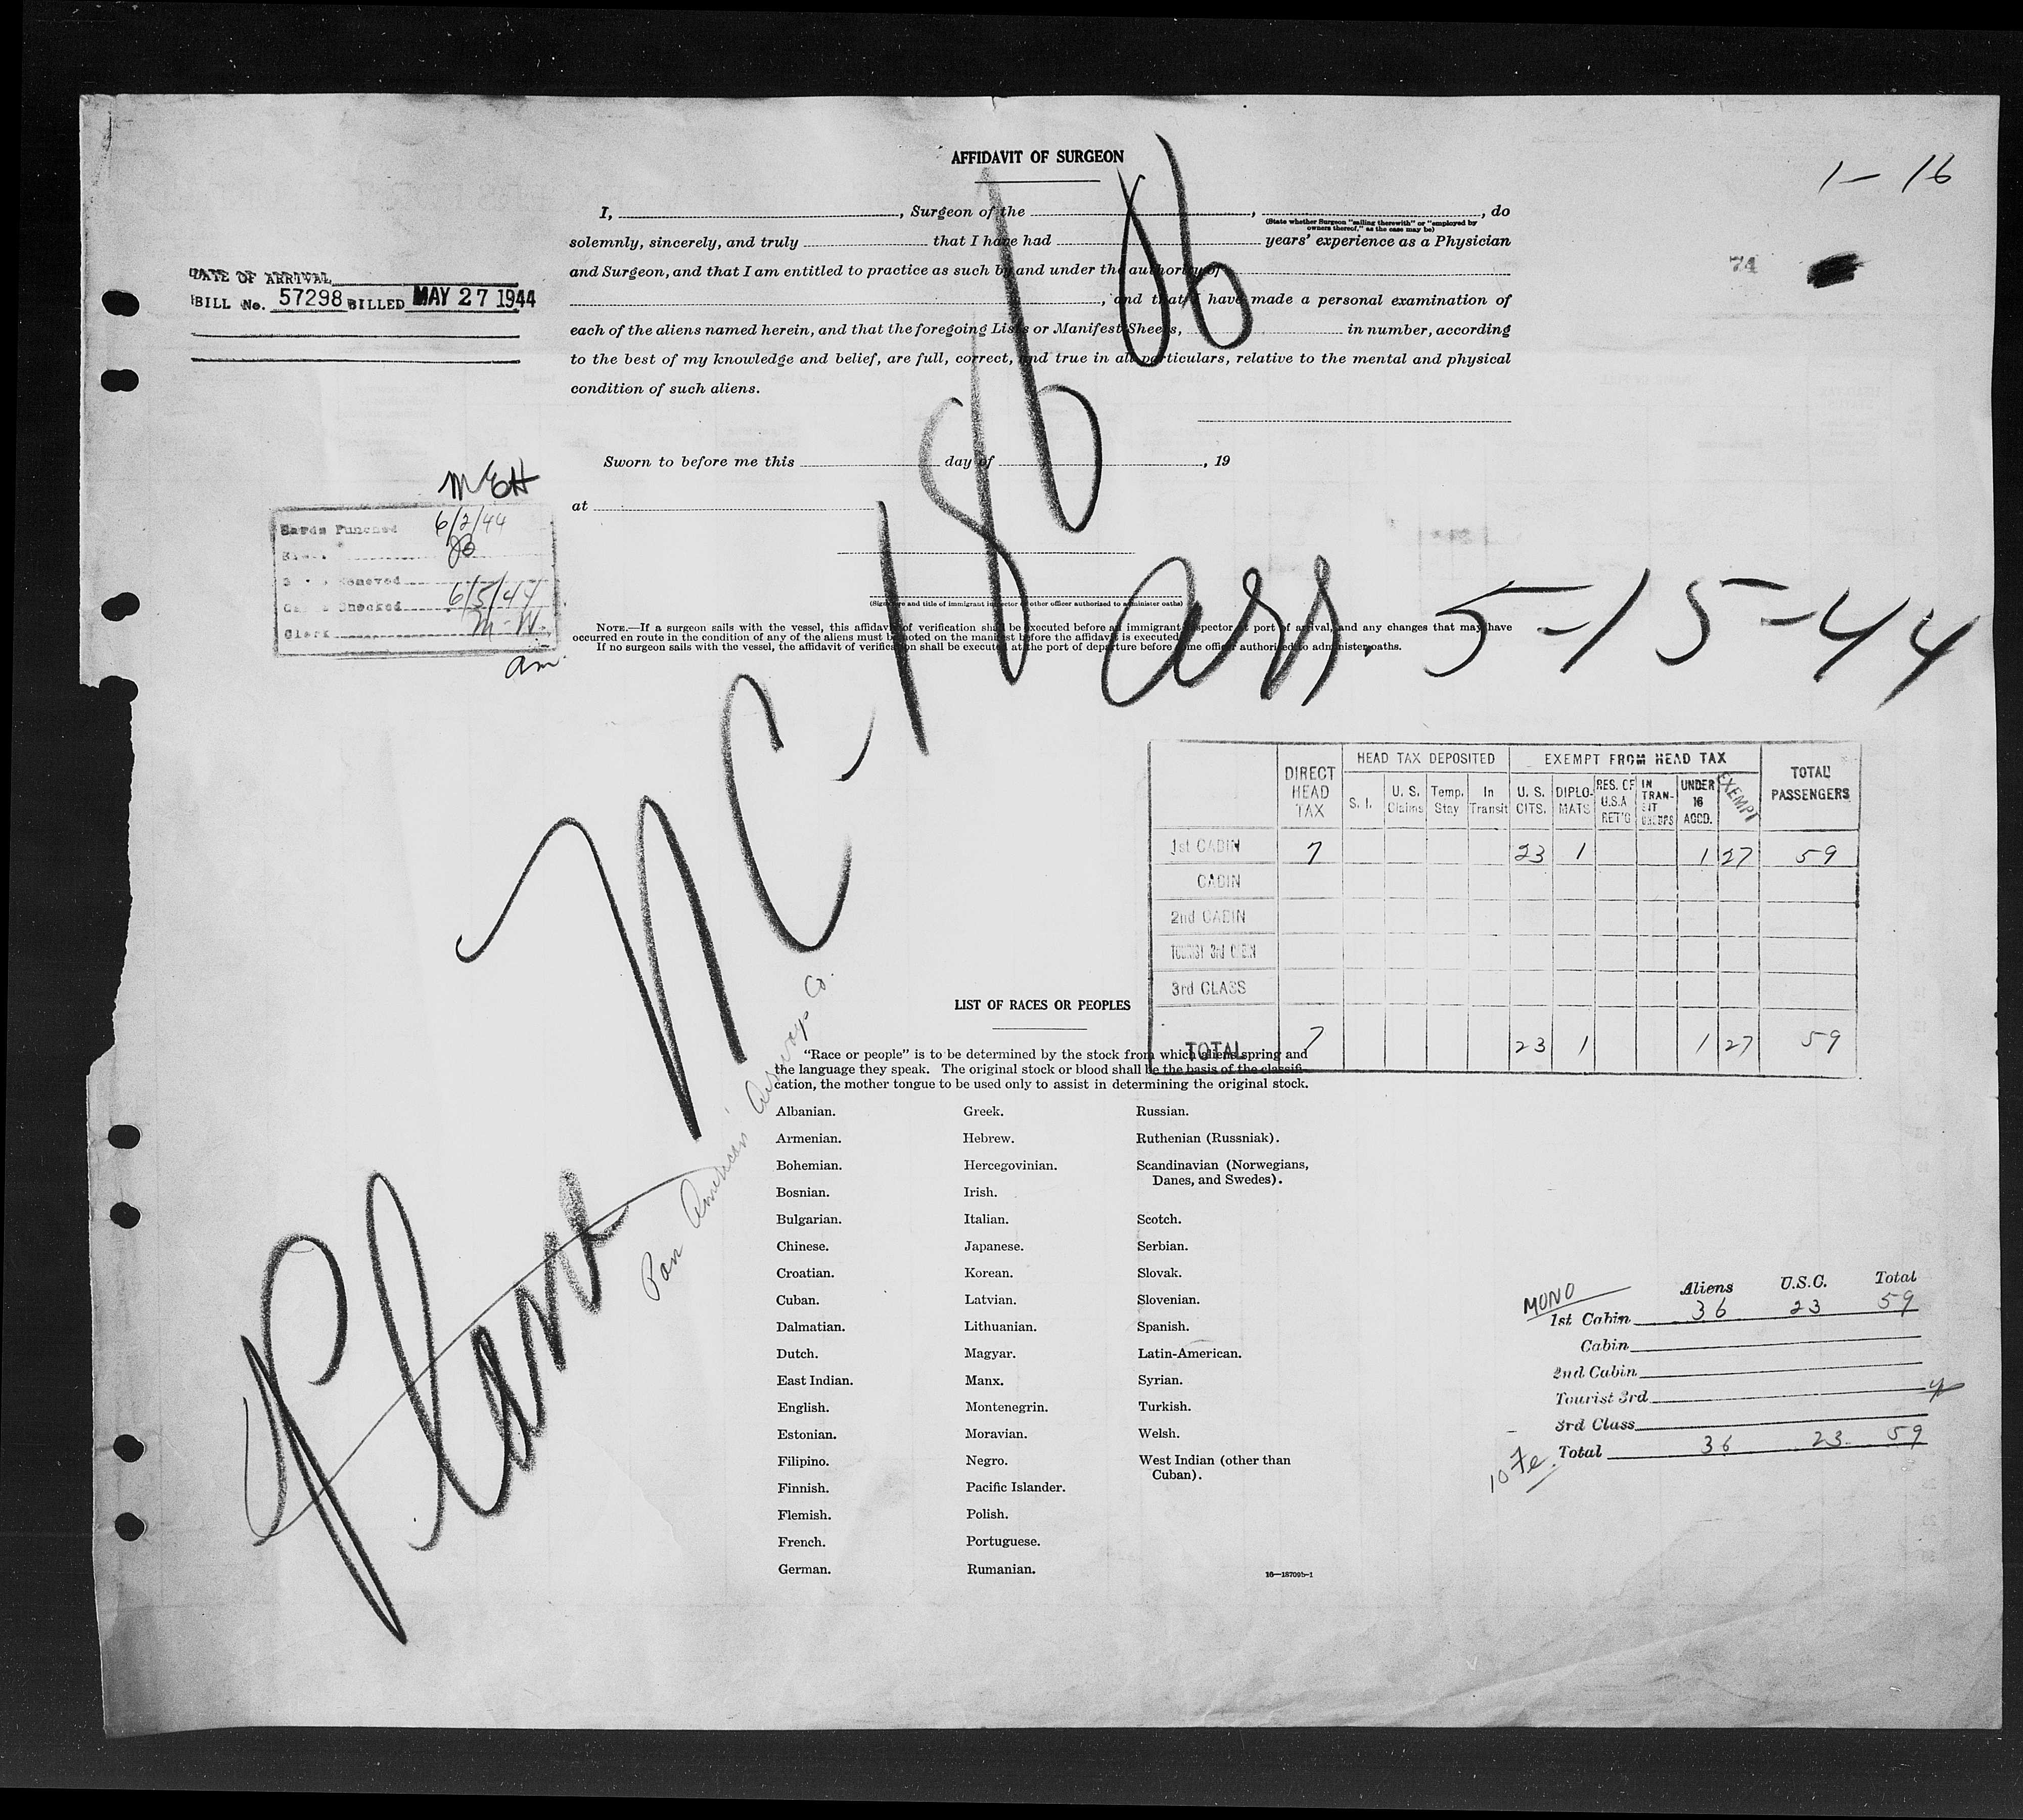 AFFIDAVIT OF SURGEON
1-16
I, , Surgeon of the , , do
(State whether Surgeon "sailing therewith" or "employed by
owners thereof," as the case may be)
solemnly, sincerely, and truly that I have had years' experience as a Physician
and Surgeon, and that I am entitled to practice as such by and under the authority of
, and that I have made a personal examination of
each of the aliens named herein, and that the foregoing Lists or Manifest Sheets, in number, according
to the best of my knowledge and belief, are full, correct, and true in all particulars, relative to the mental and physical
condition of such aliens.
74
DATE OF ARRIVAL
BILL No. 57298 BILLED MAY 27 1944
Sworn to before me this day of , 19
at
(Signature and title of immigrant inspector or other officer authorized to administer oaths)
NOTE.—If a surgeon sails with the vessel, this affidavit of verification shall be executed before an immigrant inspector at port of arrival, and any changes that may have
occurred en route in the condition of any of the aliens must be noted on the manifest before the affidavit is executed.
If no surgeon sails with the vessel, the affidavit of verification shall be executed at the port of departure before some officer authorized to administer oaths.
Cards Punched 6/2/44
Removed
Checked 6/5/44
Clerk M-W.
am.
Plane NC-18606
arr. 5-15-44
Pan American Airways Co.
DIRECT HEAD TAX HEAD TAX DEPOSITED EXEMPT FROM HEAD TAX TOTAL PASSENGERS
S. I. U. S. Claims Temp. Stay In Transit U. S. CITS. DIPLO-MATS RES. OF U.S.A RET'G IN TRAN-SIT UNDER 16 ACCD. EXEMPT
1st CABIN 7 23 1 1 27 59
CABIN
2nd CABIN
TOURIST 3rd CABIN
3rd CLASS
TOTAL 7 23 1 1 27 59
LIST OF RACES OR PEOPLES
"Race or people" is to be determined by the stock from which aliens spring and
the language they speak. The original stock or blood shall be the basis of the classifi-
cation, the mother tongue to be used only to assist in determining the original stock.
Albanian.
Armenian.
Bohemian.
Bosnian.
Bulgarian.
Chinese.
Croatian.
Cuban.
Dalmatian.
Dutch.
East Indian.
English.
Estonian.
Filipino.
Finnish.
Flemish.
French.
German.
Greek.
Hebrew.
Hercegovinian.
Irish.
Italian.
Japanese.
Korean.
Latvian.
Lithuanian.
Magyar.
Manx.
Montenegrin.
Moravian.
Negro.
Pacific Islander.
Polish.
Portuguese.
Rumanian.
Russian.
Ruthenian (Russniak).
Scandinavian (Norwegians,
Danes, and Swedes).
Scotch.
Serbian.
Slovak.
Slovenian.
Spanish.
Latin-American.
Syrian.
Turkish.
Welsh.
West Indian (other than
Cuban).
16—18709b-1
MONO
Aliens U.S.C. Total
1st Cabin 36 23 59
Cabin
2nd Cabin
Tourist 3rd
3rd Class
Total 36 23 59